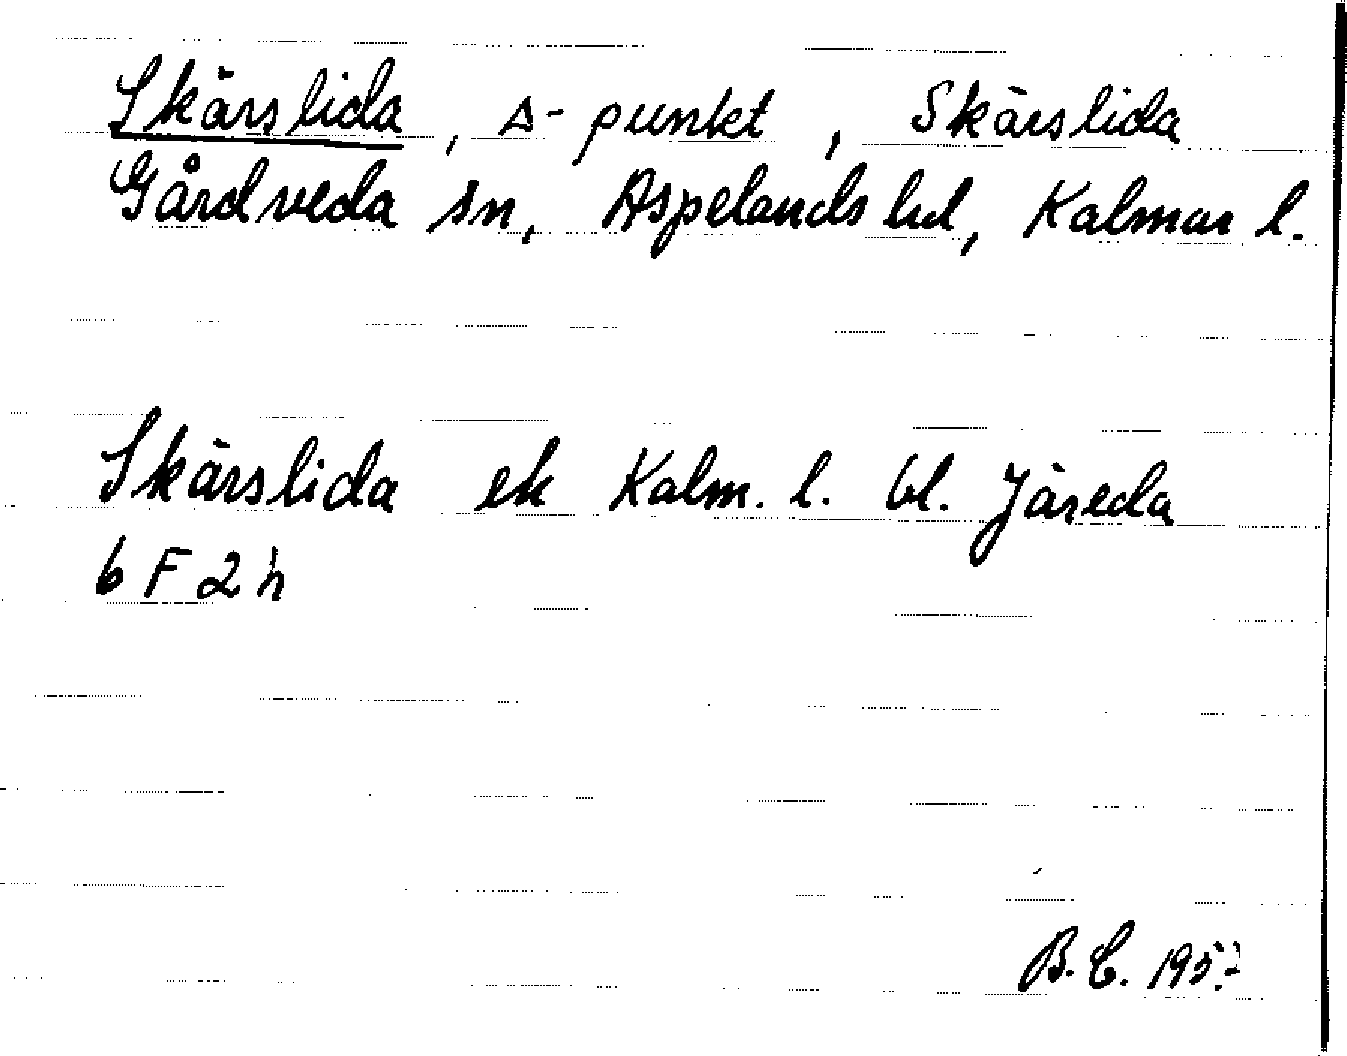 Skärslida, Δ-punkt, Skärslida
Gårdveda sn, Aspelands hd, Kalmar l.
Skärslida ek Kalm. l. bl. Järeda
6 F 2 h
B.C.